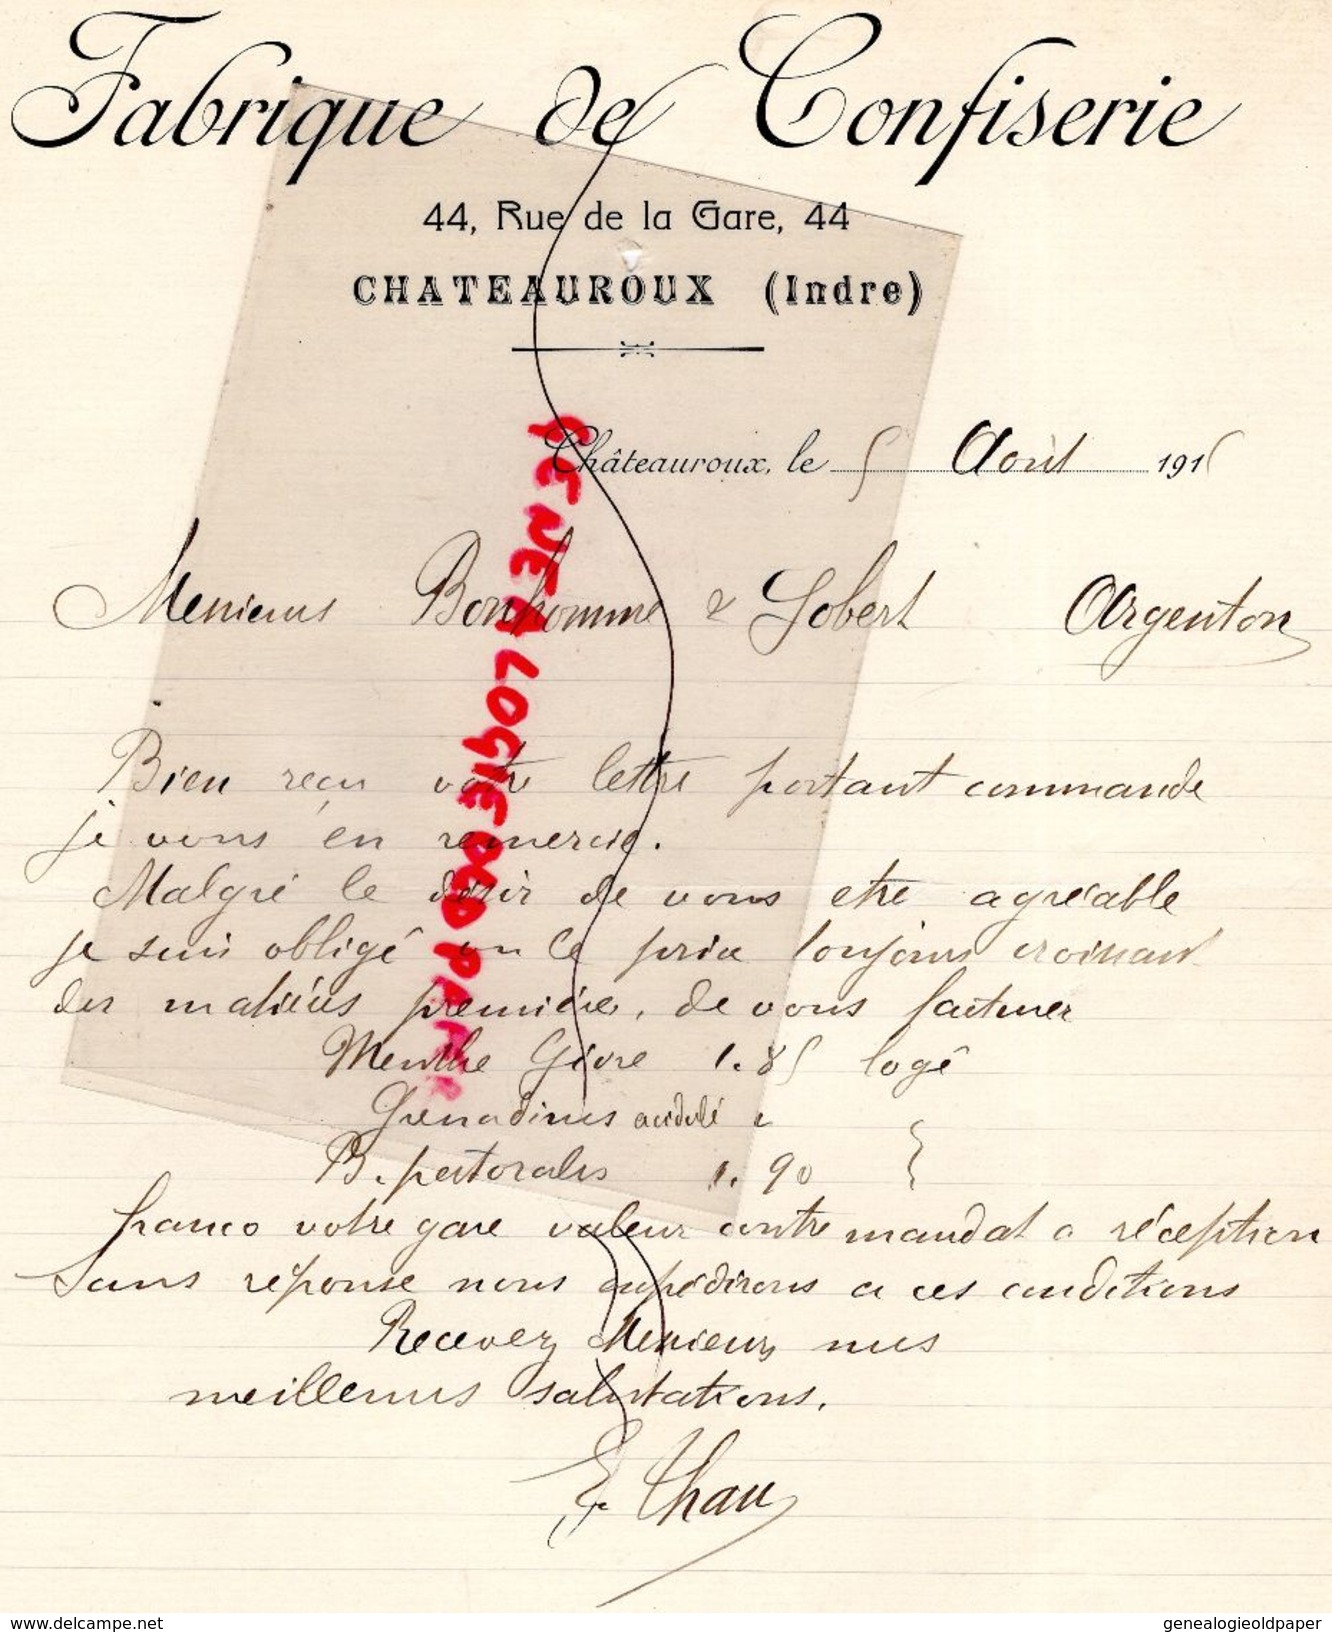 Fabrique de Confiserie
44, Rue de la Gare, 44
CHATEAUROUX (Indre)
Châteauroux, le 5 Août 1915
Messieurs Bonhomme & Jobert Argenton
Bien reçu votre lettre portant commande
je vous en remercie.
Malgré le désir de vous etre agréable
je suis obligé vu le prix toujours croissant
des matières première, de vous facturer
Menthe Givre 1.85 logé
Grenadines acidulé "
B. pectorales 1.90 }
franco votre gare valeur contre mandat a réception
Sans réponse nous expédirons a ces conditions
Recevez Messieurs nos
meilleures salutations.
E. Thau
GENEALOGIE OLD PAPER
www.delcampe.net
genealogieoldpaper